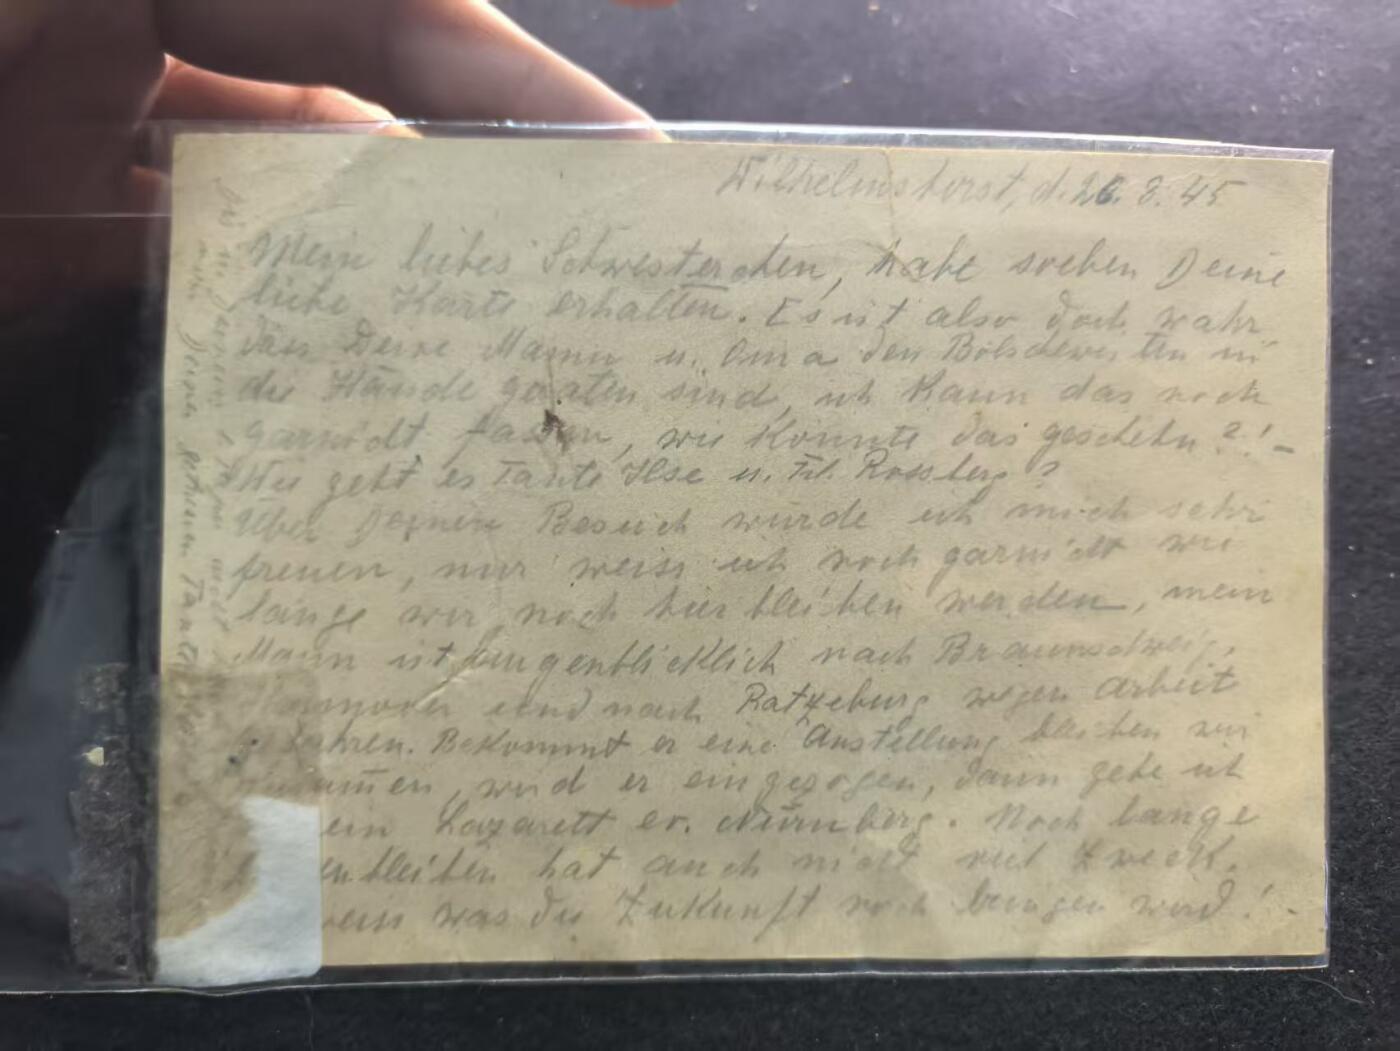 Wilhelmshorst, d. 26. 3. 45
Mein liebes Schwesterchen, habe soeben Deine
liebe Karte erhalten. Es ist also doch wahr
dass Deine Mama u. Oma den Bolschewisten in
die Hände geraten sind, ich kann das noch
garnicht fassen, wie konnte das geschehn?! –
Wie geht es Tante Ilse u. Frl. Rossberg?
Über Deinen Besuch würde ich mich sehr
freuen, nur weiss ich noch garnicht wie
lange wir noch hier bleiben werden, mein
Mann ist augenblicklich nach Braunschweig,
Hannover und nach Ratzeburg wegen Arbeit
gefahren. Bekommt er eine Anstellung bleiben wir
zusammen, wird er eingezogen, dann gehe ich
ein Lazarett ev. Nürnberg. Noch lange
bleiben hat auch nicht viel Zweck.
was die Zukunft noch bringen wird! –
Deiner Tante